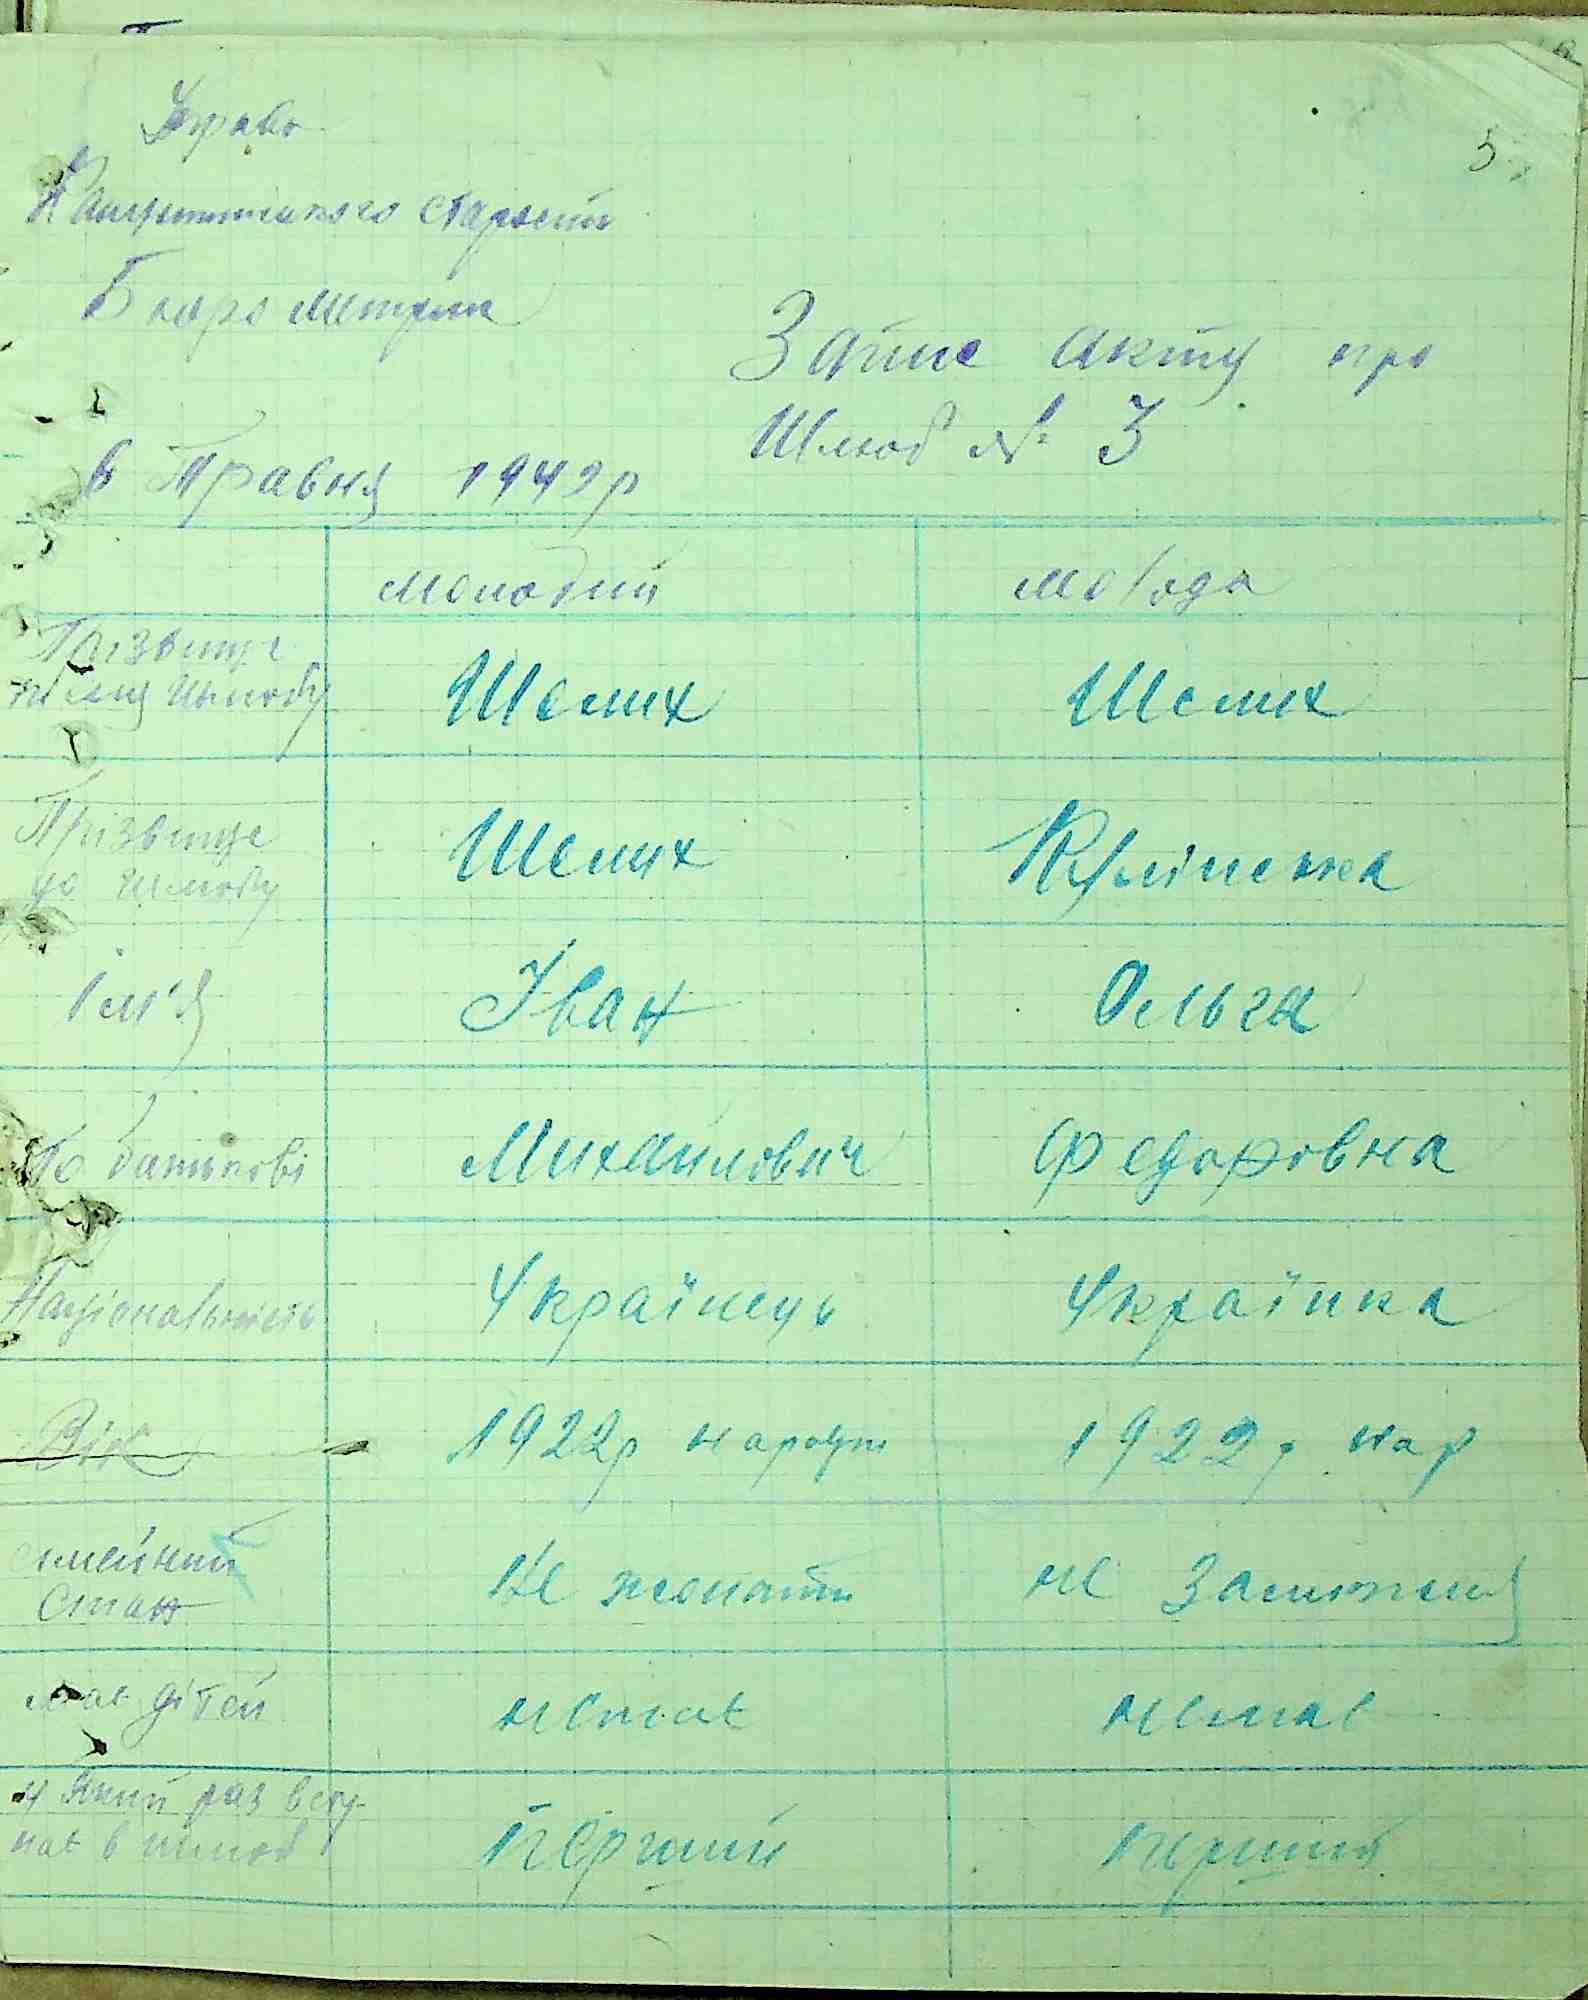 Управа
старости
Бюро Метрик
5
Запис акту про
Шлюб № 3
6 Травня 1942р
молодий молода
Прізвище
після Шлюбу Шелих Шелих
Прізвище
до Шлюбу Шелих
Ім'я Іван Ольга
По батькові Михайлович Федоровна
Національність Українець Українка
Вік 1922р народж 1922р нар
семейний
стан не женати не Замужняя
має дітей немає немає
у Який раз всту-
пає в шлюб перший перший